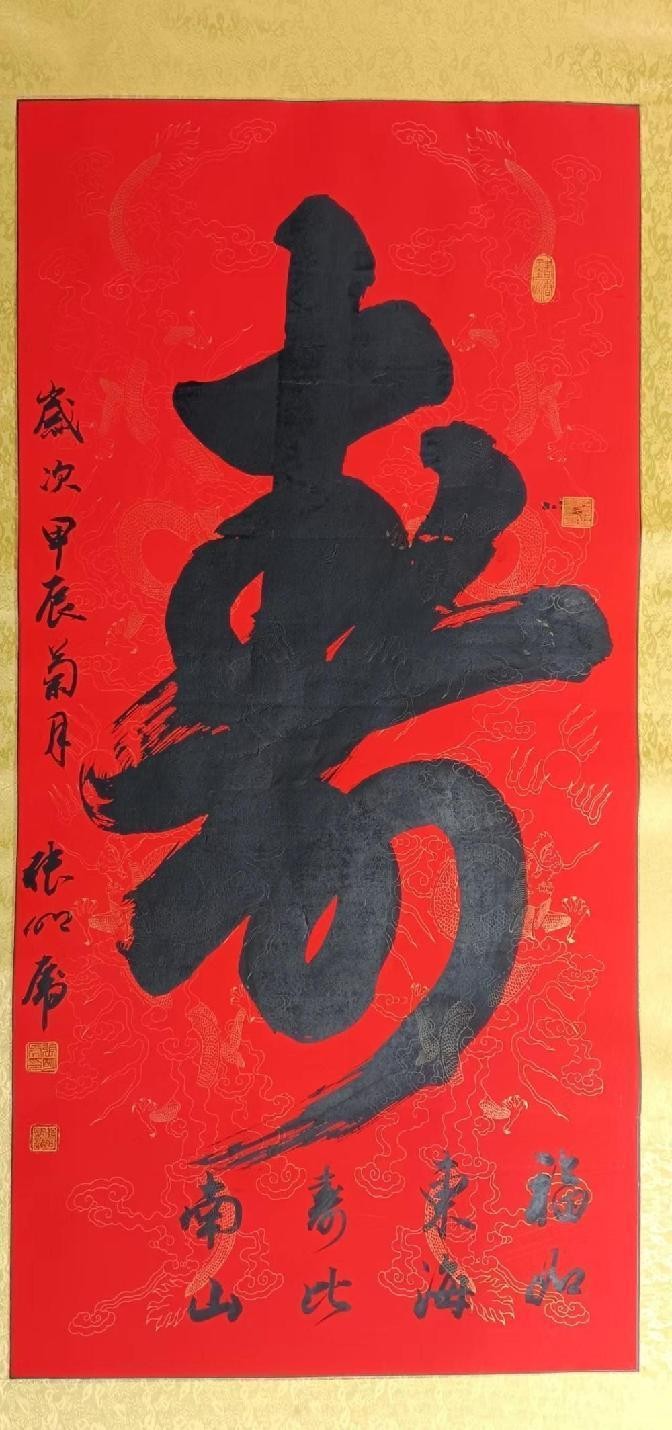 壽
福如
東海
壽比
南山
歲次甲辰菊月
張明虎